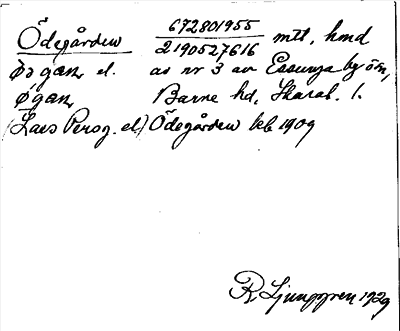 Ödegården 672801955 mtl, hmd
2190527616
ö̀gan, el. av nr 3 av Essunga by o sn,
ø̀gan, Barne hd, Skarab. l.
(Lars Persg. el.) Ödegården keb 1909
R Ljunggren 1929